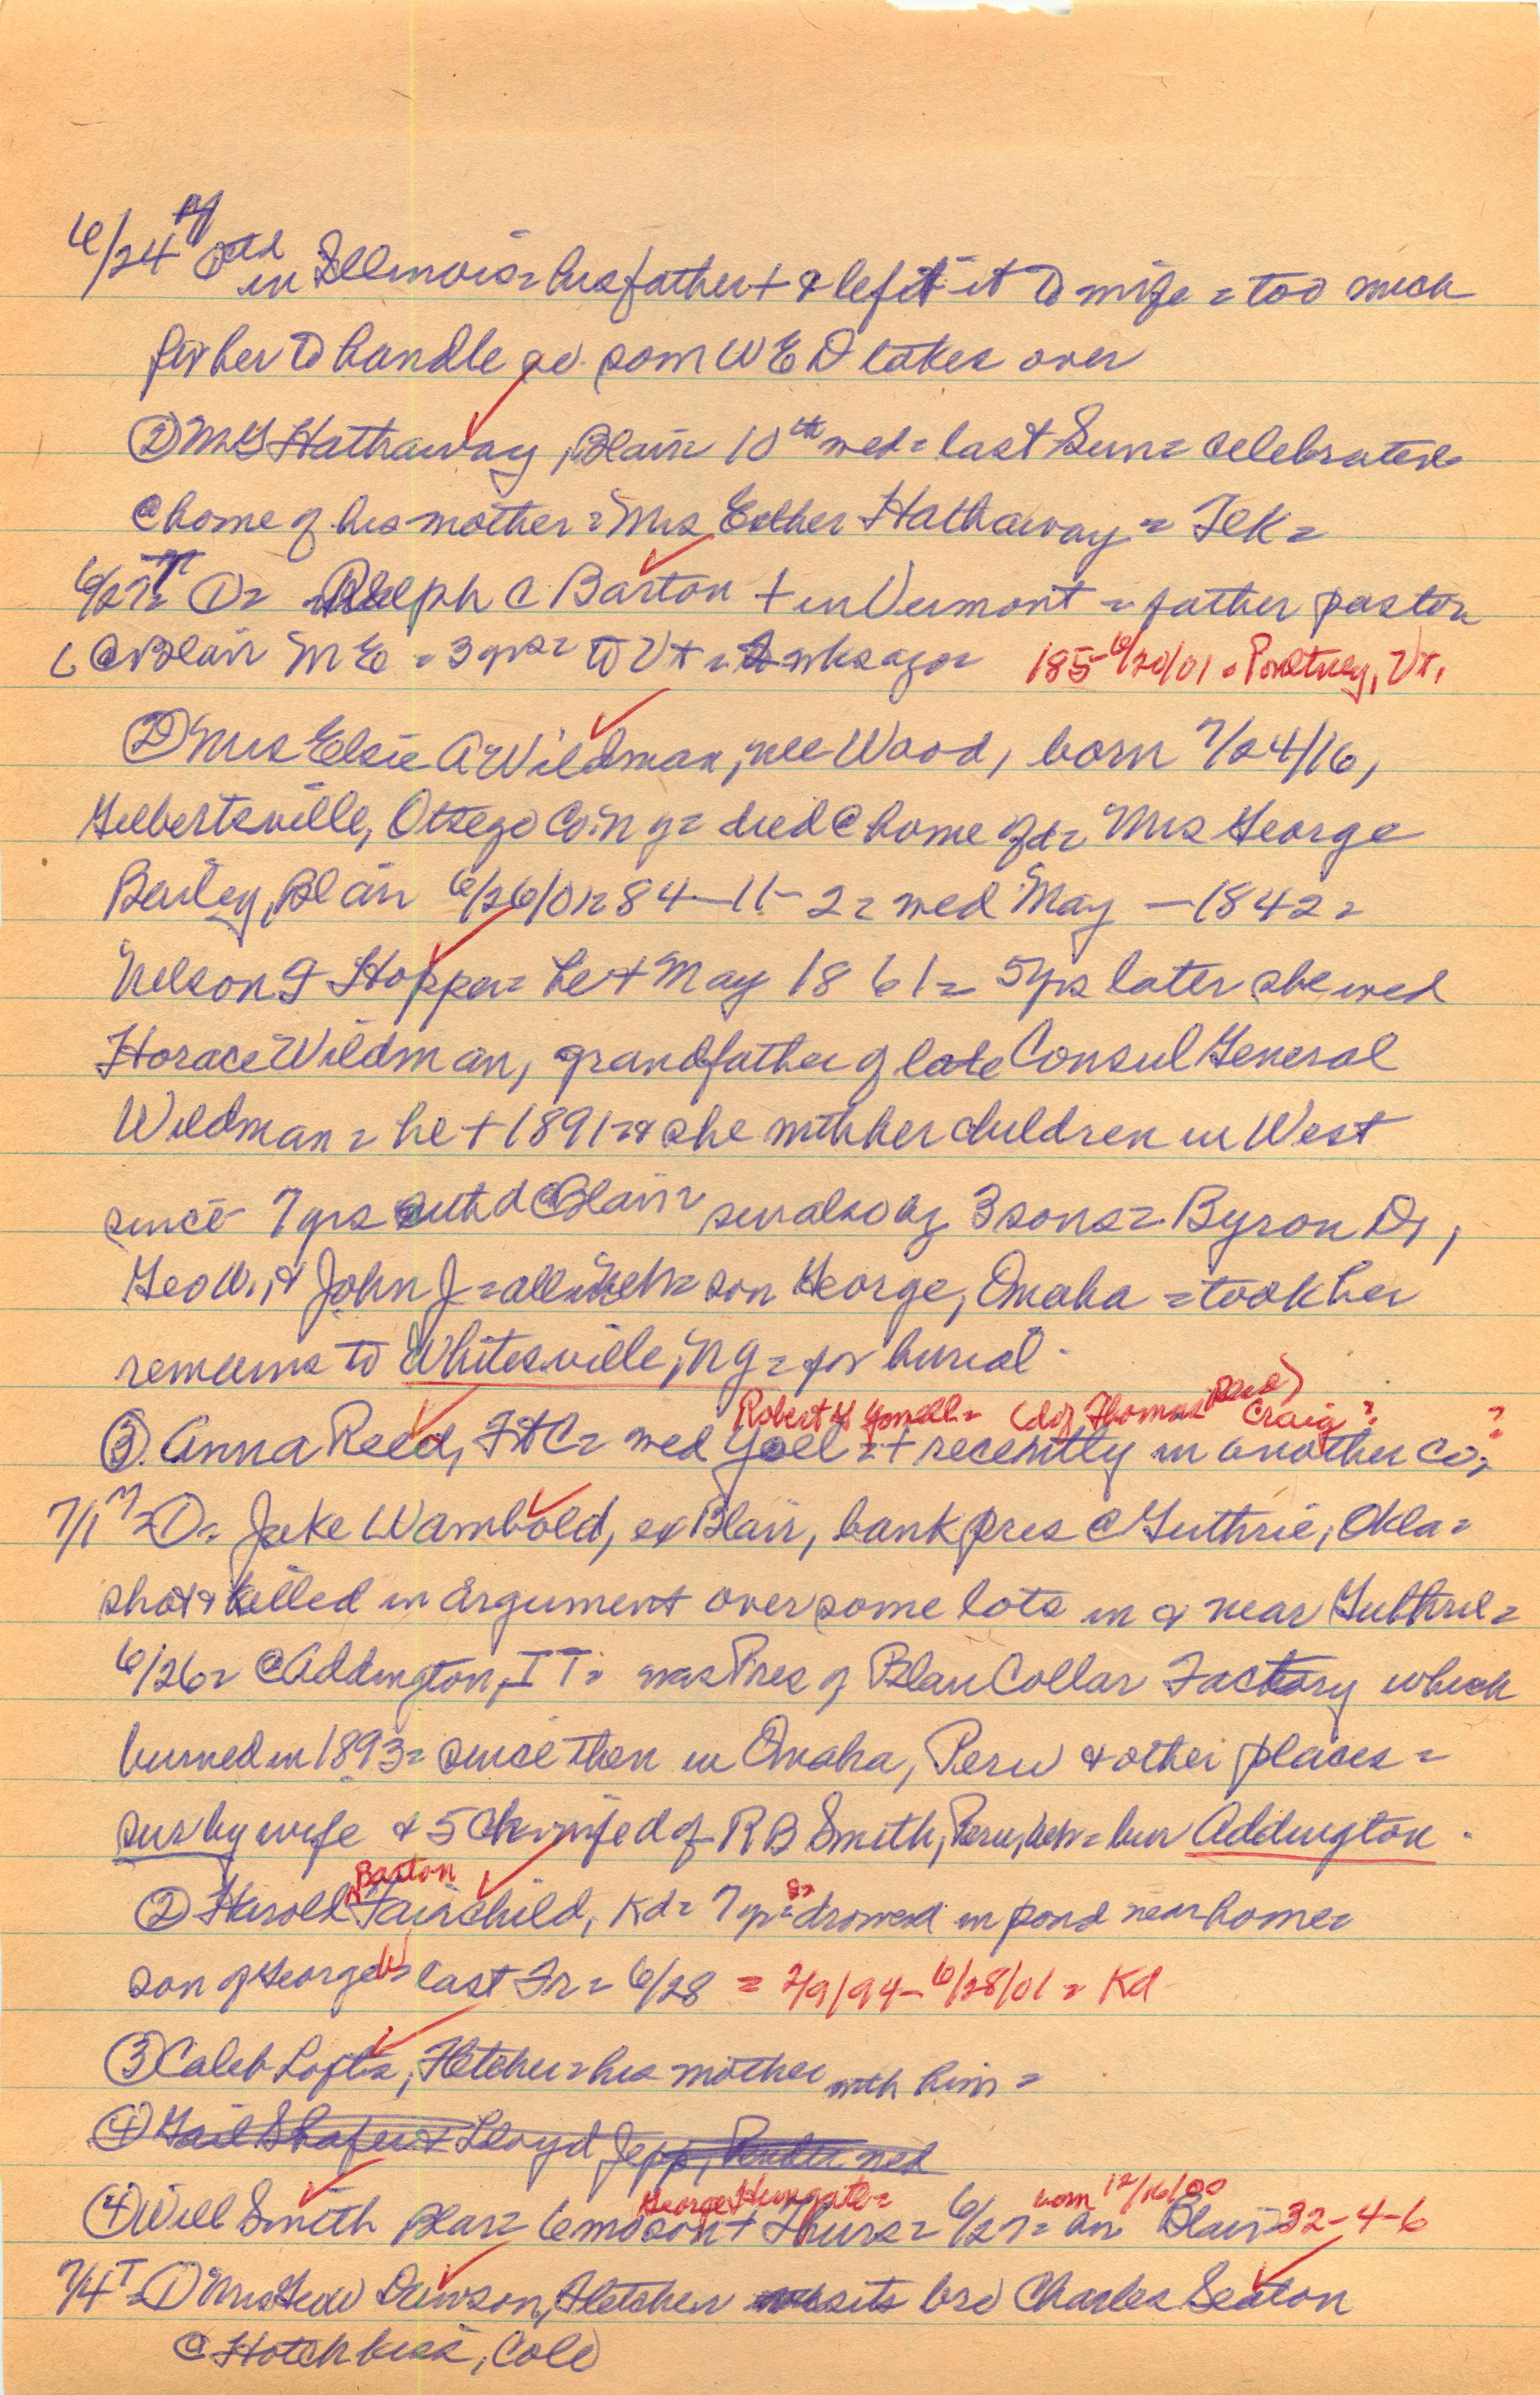 6/24 M ① ctd in Illinois = his father + & left it to wife = too much
for her to handle so son W E D takes over
② M G Hathaway, Blair = 10th wed = last Sun = celebrated
@ home of his mother = Mrs Esther Hathaway = Tek =
6/27 T ① = Ralph C Barton + in Vermont = father pastor
@ Blair M E = 3 yrs = to Vt = wks ago = 185-6/20/01 = Poultney, Vt.
② Mrs Elsie A Wildman, nee Wood, born 7/24/16,
Gilbertsville, Otsego Co; N Y = died @ home of d = Mrs George
Bailey, Blair 6/26/01 = 84-11-2 = wed May — 1842 =
Nelson T Hopper = he + May 1861 = 5 yrs later she wed
Horace Wildman, grandfather of late Consul General
Wildman = he + 1891 = & she with her children in West
since 7 yrs with d @ Blair = sur also by 3 sons = Byron D,
Geo W, & John J = all in Neb = son George, Omaha = took her
remains to Whitesville, N Y = for burial.
Robert G Yowell = (d of Thomas Reed) Craig? ?
③ Anna Reed, Ft C = wed Yoel = + recently in another co;
7/1 M = ① = Jake Wambold, ex Blair, bank pres @ Guthrie, Okla =
shot & killed in argument over some lots in & near Guthrie =
6/26 = @ Addington, I T = was Pres of Blair Collar Factory which
burned in 1893 = since then in Omaha, Peru & other places =
sur by wife & 5 ch = wife d of R B Smith, Peru, Neb = bur Addington.
Barton
② Harold ^ Fairchild, Kd = 7 yr = 8 = drowned in pond near home =
son of George W = last Fr = 6/28 = 2/9/94-6/28/01 = Kd
③ Caleb Lofts, Fletcher = his mother with him =
④ Gail Shafer & Lloyd Jepp, Pender wed
George Hungate = born 12/16/00
④ Will Smith Blair = 6 mo son + Thurs = 6/27 = in Blair 32-4-6
7/4 T = ① Mrs Geo W Dawson, Fletcher visits bro Charles Seaton
@ Hotchkiss, Colo